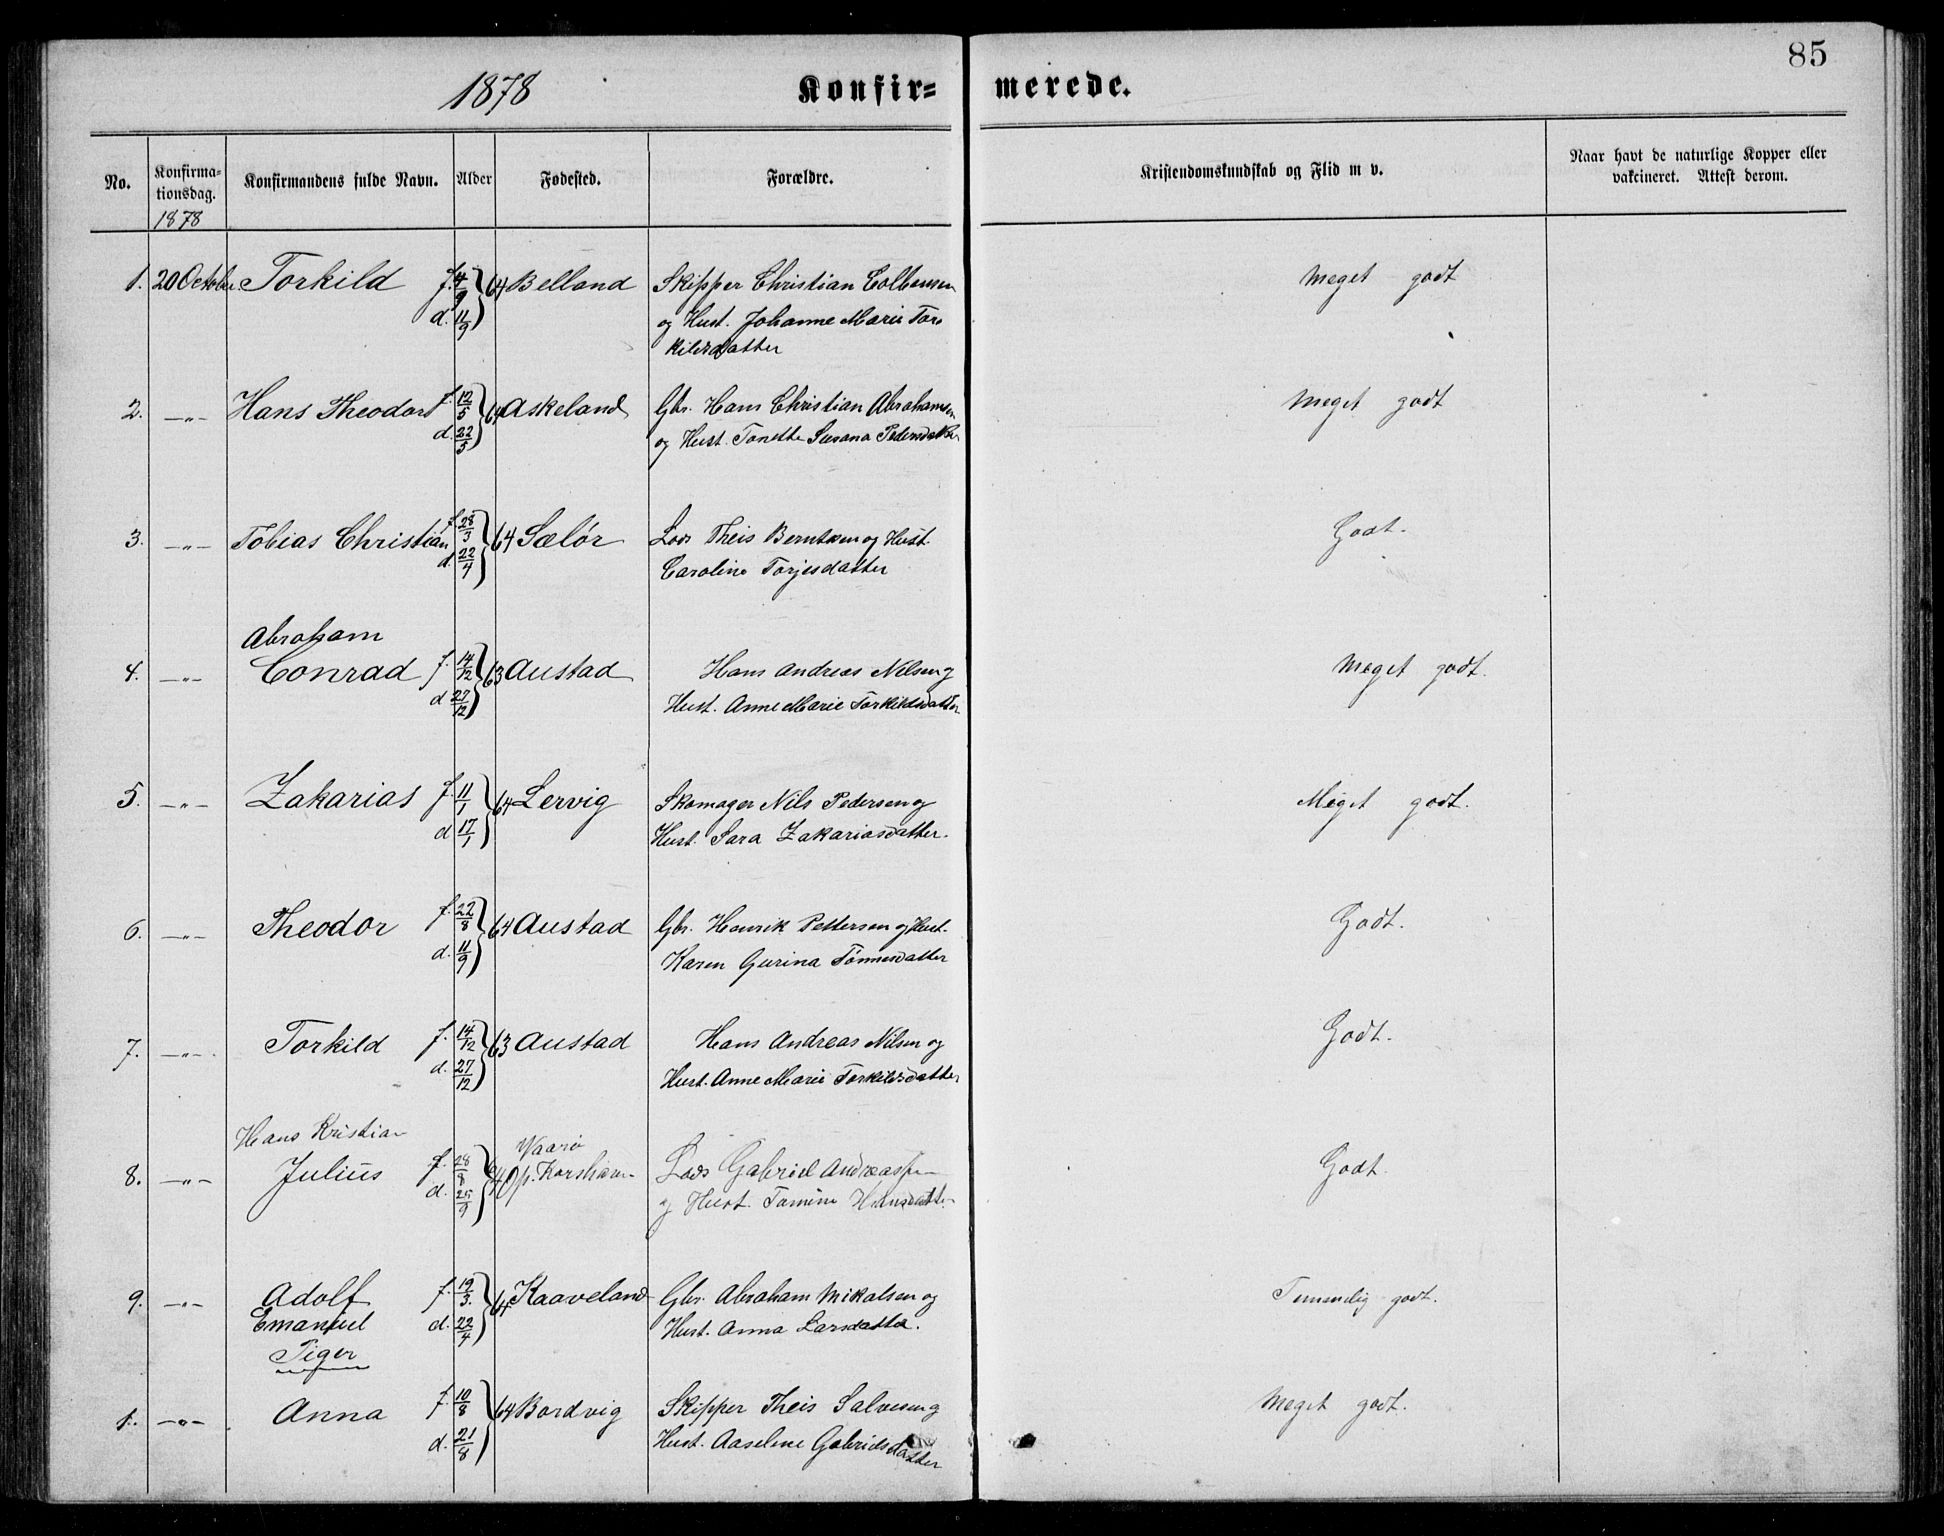 85
1878 Konfir= merede.
No. Konfirma-tionsdag. Konfirmandens fulde Navn. Alder Fødested. Forældre. Kristendomskundskab og Flid m v. Naar havt de naturlige Kopper eller vakcineret. Attest derom.
1878
1. 20 October Torkild f. 4/9 d. 11/9 } 64 Belland Skipper Christian Colbensen Meget godt
og Hust. Johanne Marie Tor
kildsdatter
2. —"— Hans Theodor f. 12/5 d. 22/5 } 64 Askeland Gbr. Hans Christian Abrahamsen Meget godt
og Hust. Tonette Susana Pedersdatter
3. —"— Tobias Christian f. 28/3 d. 22/4 } 64 Sælør Lods Theis Berntsen og Hust. Godt.
Caroline Torjesdatter
Abraham
4. —"— Conrad f. 14/12 d. 27/12 } 63 Austad Hans Andreas Nilsen og Meget godt.
Hust. Anne Marie Torkildsdatter
5. —"— Zakarias f. 11/1 d. 17/1 } 64 Lervig Skomager Nils Pedersen og Meget godt.
Hust. Sara Zakariasdatter.
6. —"— Theodor f. 22/8 d. 11/9 } 64 Austad Gbr. Henrik Pettersen og Hust. Godt.
Karen Gurina Tønnesdatter
7. —"— Torkild f. 14/12 d. 27/12 } 63 Austad Hans Andreas Nilsen og Godt.
Hust. Anne Marie Torkildsdatter
Hans Kristian Waarø
8. —"— Julius f. 28/8 d. 25/9 } 64 Op. Korshavn Lods Gabriel Andreassen Godt
og Hust. Tomine Hansdatter
9. —"— Adolf f. 19/3. d. 22/4 } 64 Kaaveland Gbr. Abraham Mikalsen og Temmelig godt.
Emanuel Hust. Anna Larsdatter.
Piger
1. —"— Anna f. 10/8 d. 21/8 } 64 Bordvig Skipper Theis Salvesen og Meget godt.
Hust. Aaseline Gabrielsdatter